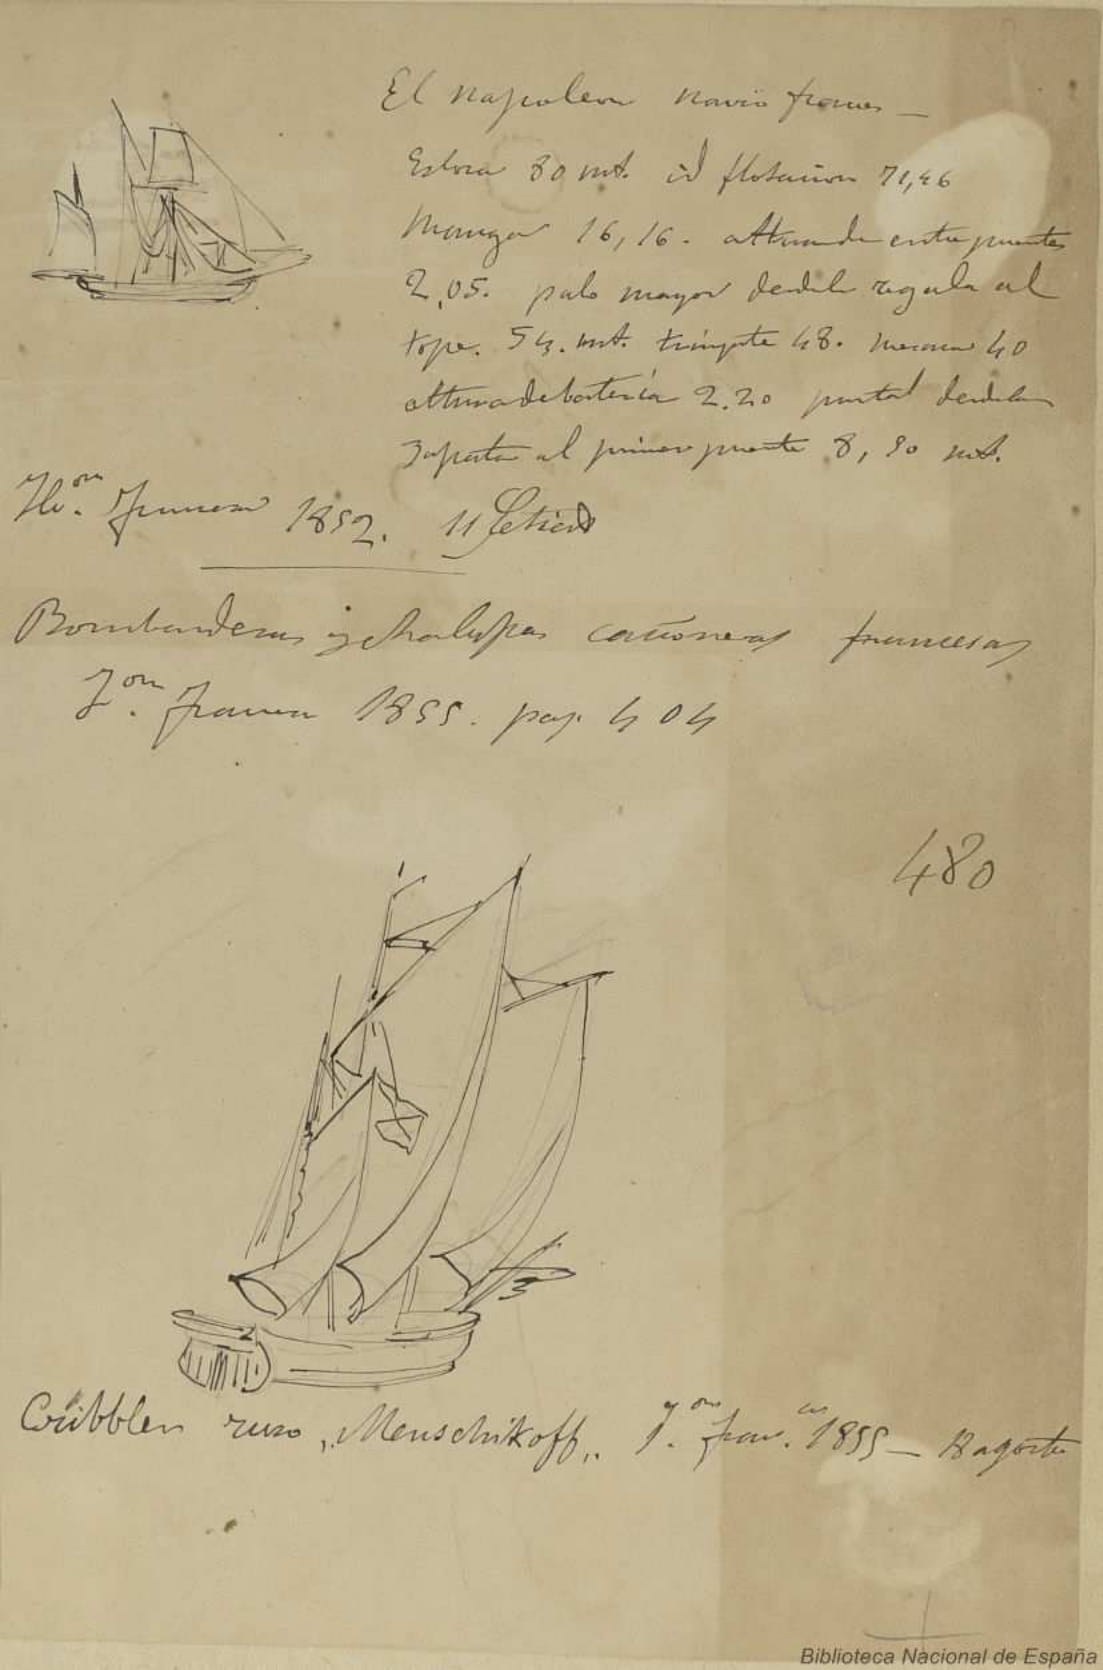 El napoleon navio frances —
Eslora 80 mt. id flotacion 71,46
Manga 16,16. altura de entre puentes
2,05. palo mayor desde la regala al
tope. 54. mt. trinquete 48. mesana 40
altura de bateria 2.20 puntal desde la
zapata al primer puente 8,
Yln.on francesa 1852. 11
Bombarderas y chalupas cañoneras francesas
Y.on francesa 1855. pag. 404
480
ruso „Menschikoff„. Y.on fran.as 1855 — 18 agosto
Biblioteca Nacional de España